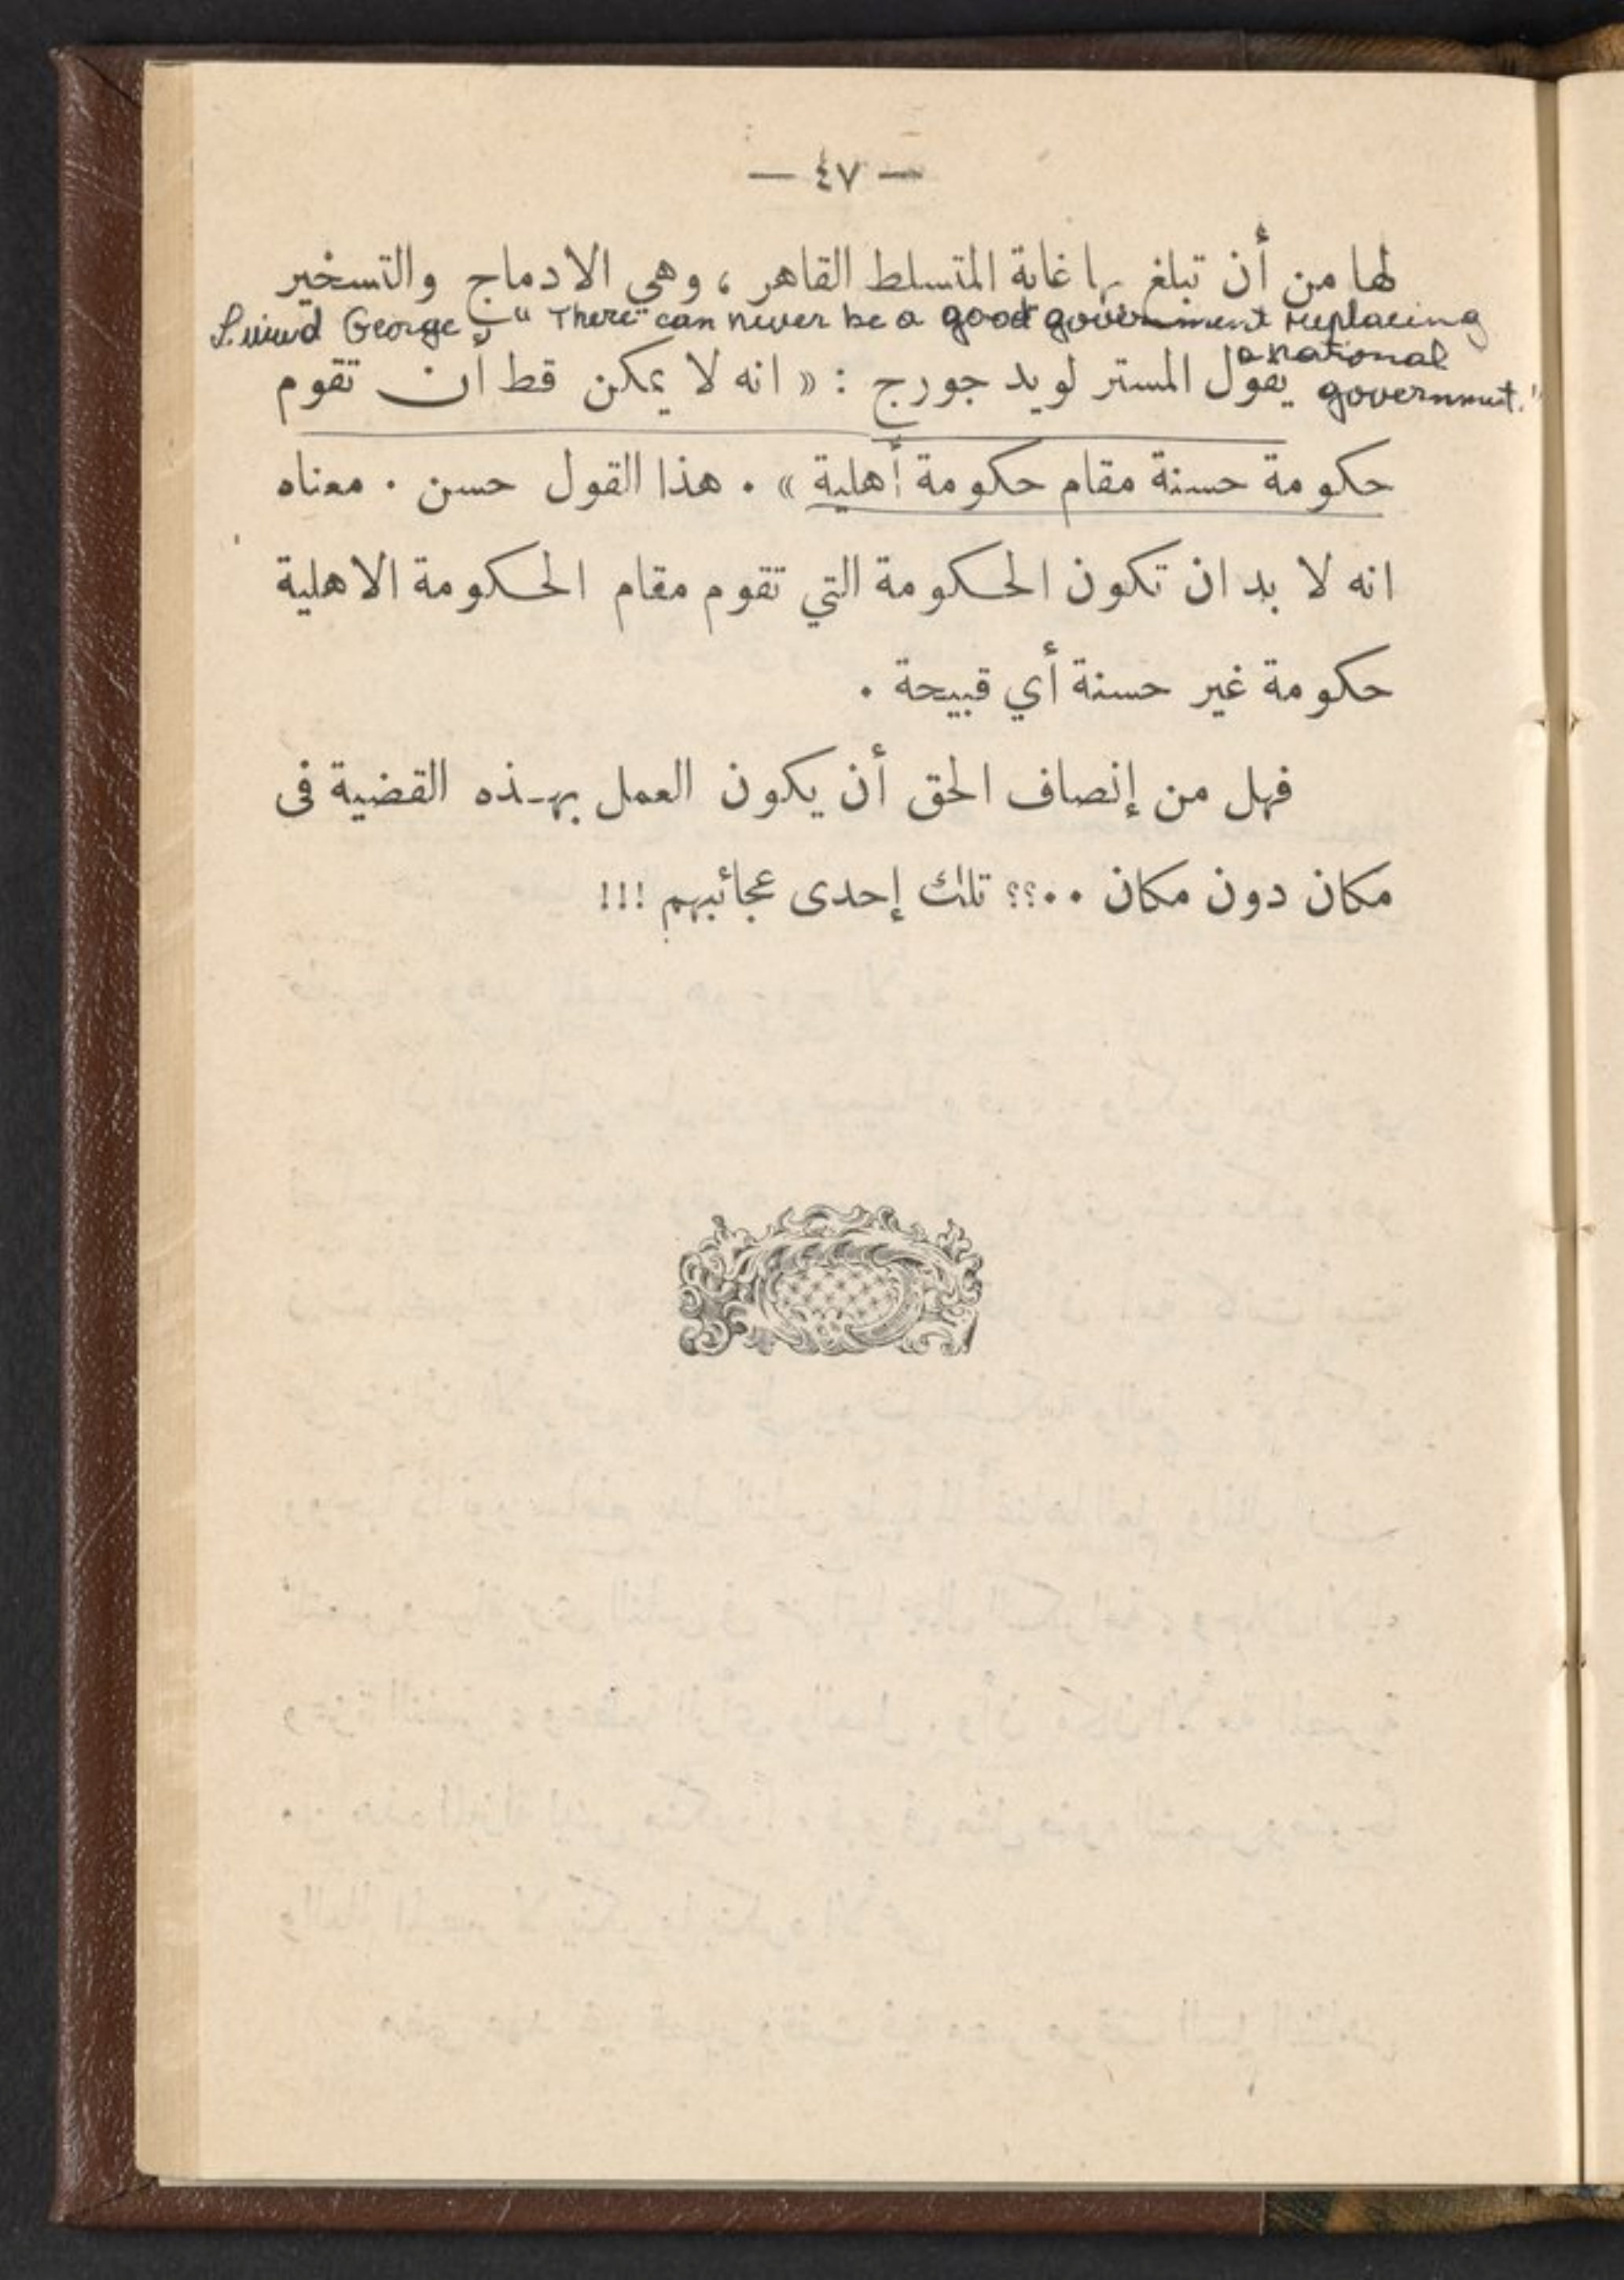 — ٤٧ —
لها من أن تبلغ بها غاية المتسلط القاهر ، وهي الادماج والتسخير
George "There can never be a good government replacing
a national
government."
يقول المستر لويد جورج : « انه لا يمكن قط أن تقوم
حكومة حسنة مقام حكومة أهلية » . هذا القول حسن . معناه
انه لا بد ان تكون الحكومة التي تقوم مقام الحكومة الاهلية
حكومة غير حسنة أي قبيحة .
فهل من إنصاف الحق أن يكون العمل بهذه القضية فى
مكان دون مكان ..؟؟ تلك إحدى عجائبهم !!!